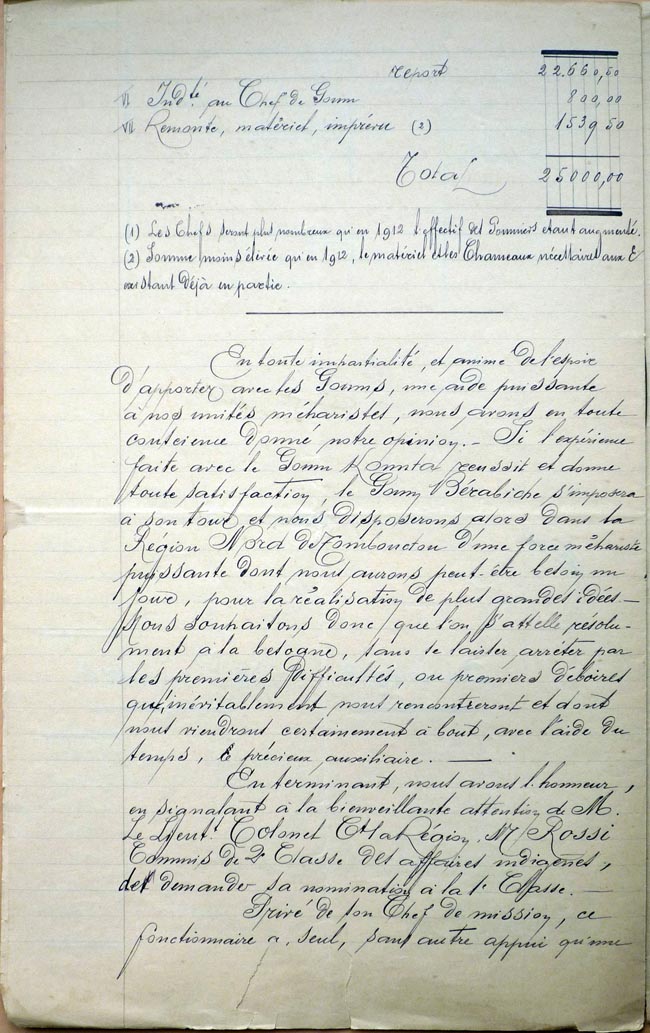 report 22.660,50
VI Ind.té au Chef de Goum 800,00
VII Remonte, matériel, imprévu (2) 1539 50
Total 25000,00
(1) Les Chefs seront plus nombreux qu'en 1912 l'effectif des Goumiers étant augmenté.
(2) Somme moins élevée qu'en 1912, le matériel et les Chameaux nécessaires aux
existant déjà en partie.
En toute impartialité, et animé de l'espoir
d'apporter avec les Goums, une aide puissante
à nos unités méharistes, nous avons en toute
conscience donné notre opinion. - Si l'expérience
faite avec le Goum Kounta réussit et donne
toute satisfaction, le Goum Bérabiche s'imposera
à son tour et nous disposerons alors dans la
Région Nord de Tombouctou d'une force méhariste
puissante dont nous aurons peut-être besoin un
jour, pour la réalisation de plus grandes idées -
Nous souhaitons donc que l'on s'attelle résolu-
ment à la besogne, sans se laisser arrêter par
les premières difficultés, ou premiers déboires
qu'inévitablement nous rencontreront et dont
nous viendrons certainement à bout, avec l'aide du
temps, ce précieux auxiliaire. —
En terminant, nous avons l'honneur,
en signalant à la bienveillante attention de M.
Le Lieut.t Colonel Ct la Région, Mr Rossi
Commis de 2e Classe des affaires indigènes,
de demander sa nomination à la 1e Classe. -
Privé de son Chef de mission, ce
fonctionnaire a, seul, sans autre appui qu'une